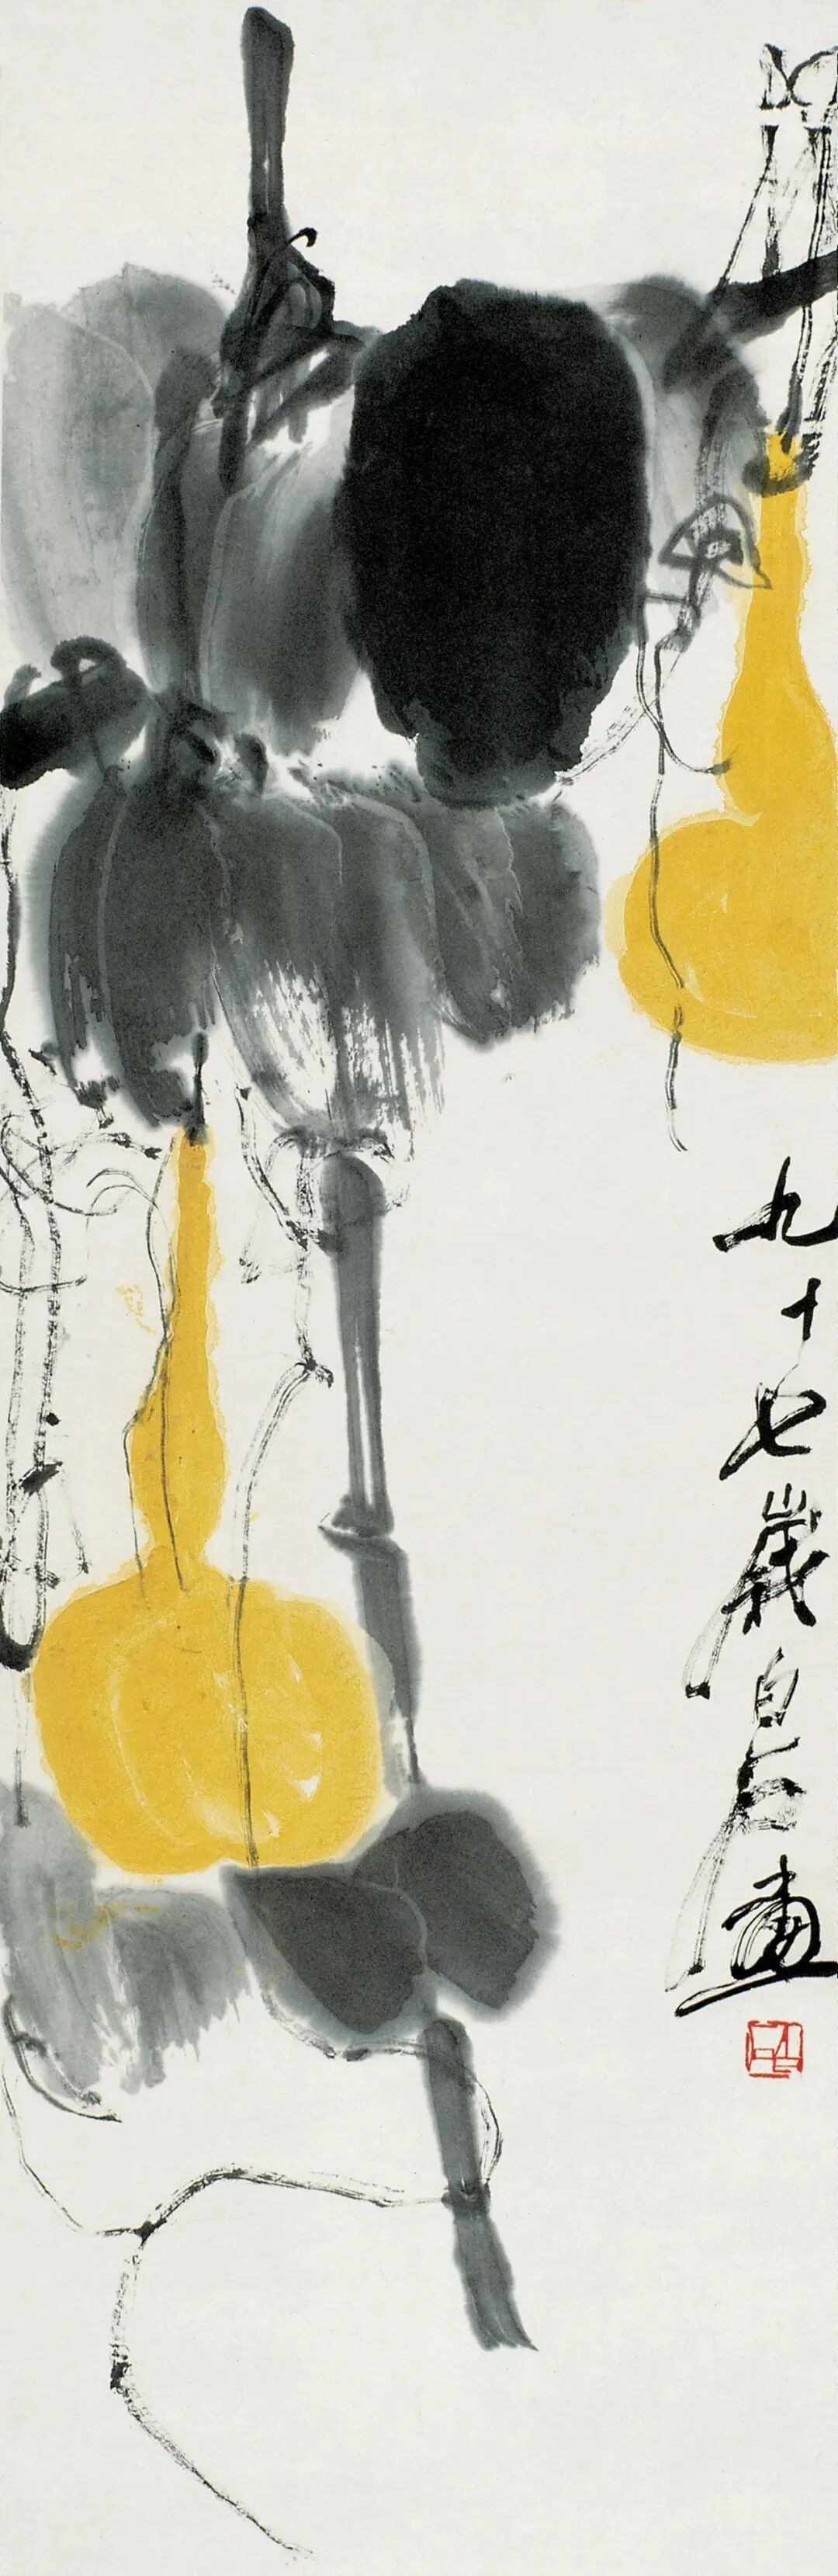 九十七歲白石畫